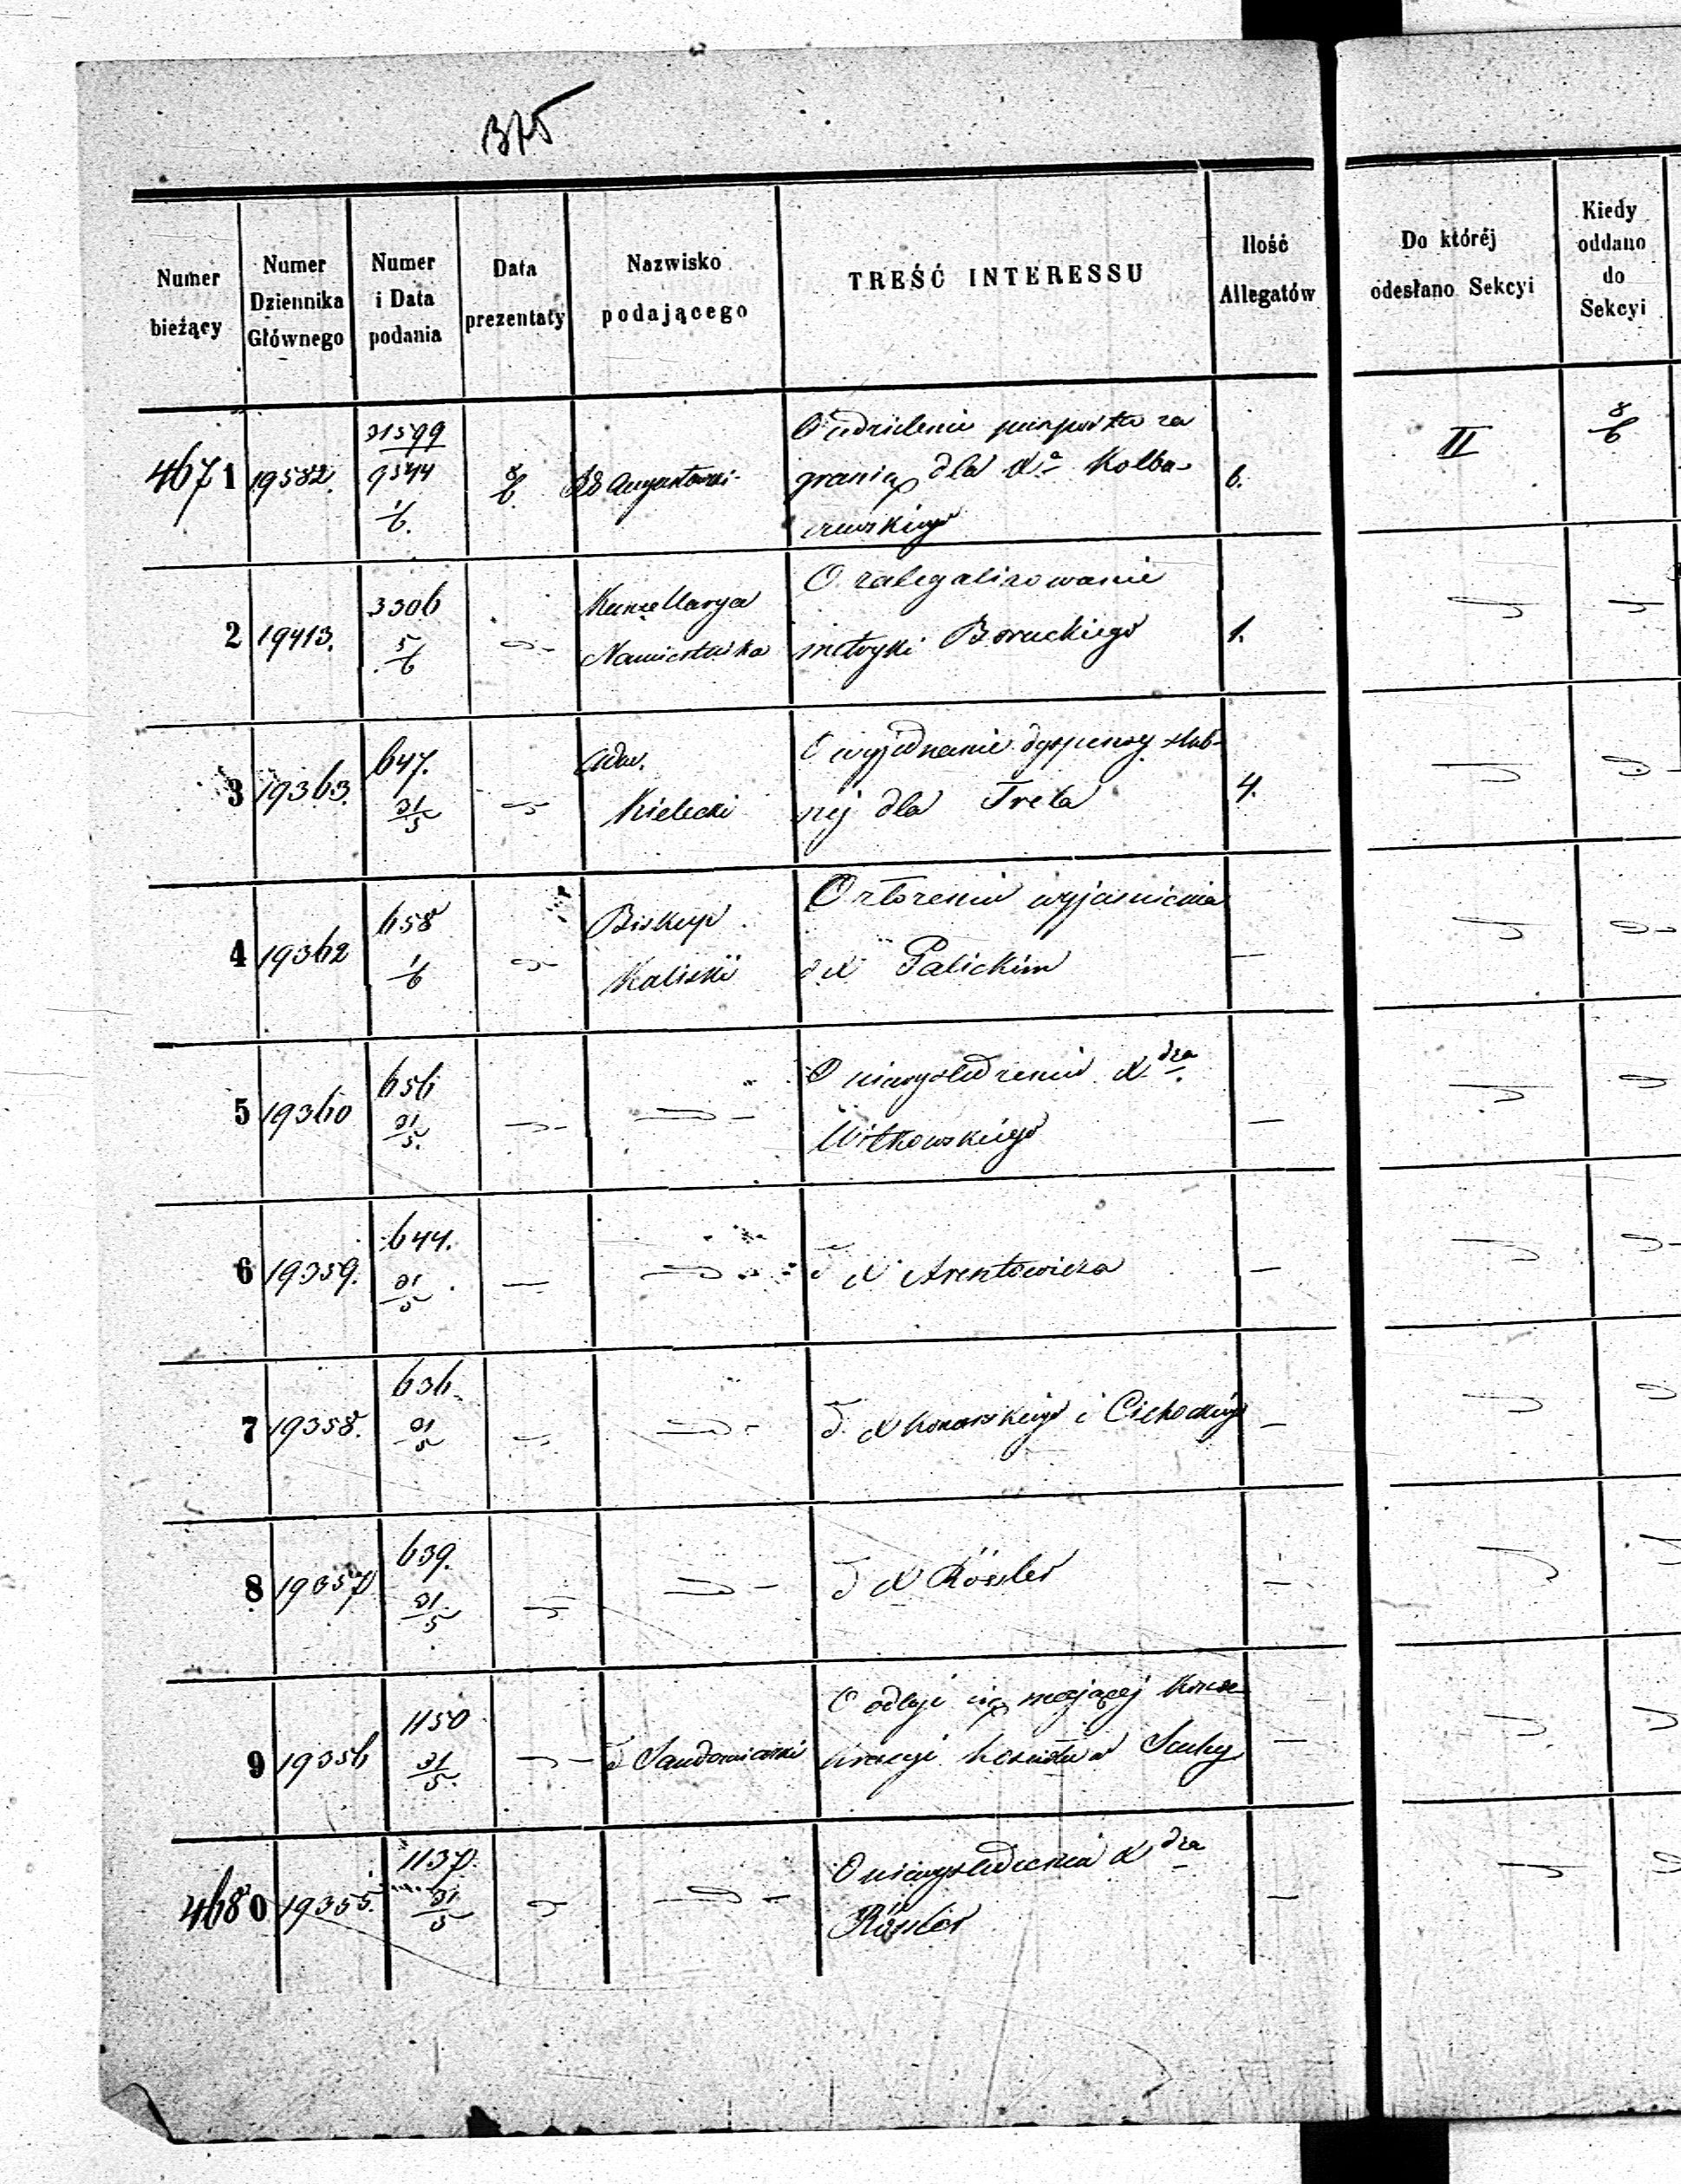 375
Numer bieżący
Numer Dziennika Głównego
Numer i Data podania
Data prezentaty
Nazwisko podającego
TREŚĆ INTERESSU
Ilość Allegatów
Do której odesłano Sekcyi
Kiedy oddano do Sekcyi
4671 19582. 31599 9544 1/6. 8/6 Augustowski
O udzielenie paszportu za
granicę dla Xa Kolba-
6. II 8/6
2 19413. 3306 5/6 Kancellarya
Namiestnika
O zalegalizowanie
metryki Boruckiego 1.
3 19363. 647. 31/5 Adm.
Kielecki
O wyjednanie dyspensy ślub-
nej dla Trela 4.
4 19362 658 1/6 Biskup
Kaliski
O złożeniu wyjaśnienia
o X Palickim —
5 19360 656 31/5.
O niewyśledzeniu Xdza
Witkowskiego —
6 19359. 644. 31/5
d X Arentowicza —
7 19358. 636. 31/5
d. X Konarskiego i Cichockiego —
8 19357 639. 31/5
d X Rössler —
9 19356 1150 31/5. d Sandomierski
O odbyć się mającej Konse-
kracyi kościoła w —
4680 19355. 1137. 31/5
O niewyśledzeniu Xdza
Rössler —